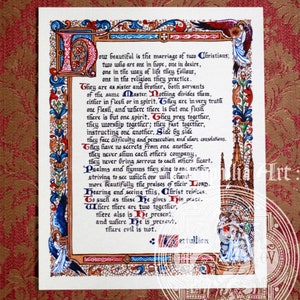 How beautiful is the marriage of two Christians;
two who are one in hope, one in desire,
one in the way of life they follow,
one in the religion they practice.
They are as sister and brother, both servants
of the same Master. Nothing divides them,
either in flesh or in spirit. They are in very truth
one flesh, and where there is but one flesh
there is but one spirit. They pray together,
they worship together; they fast together,
instructing one another. Side by side
they face difficulty and persecution and share consolations.
They have no secrets from one another,
they never shun each others company,
they never bring sorrow to each others heart.
Psalms and hymns they sing to one another,
striving to see which one will chant
more beautifully the praises of their Lord.
Hearing and seeing this, Christ rejoices.
To such as these He gives His peace.
Where there are two together,
there also is He present,
and where He is present,
there evil is not.
Tertullian
Art